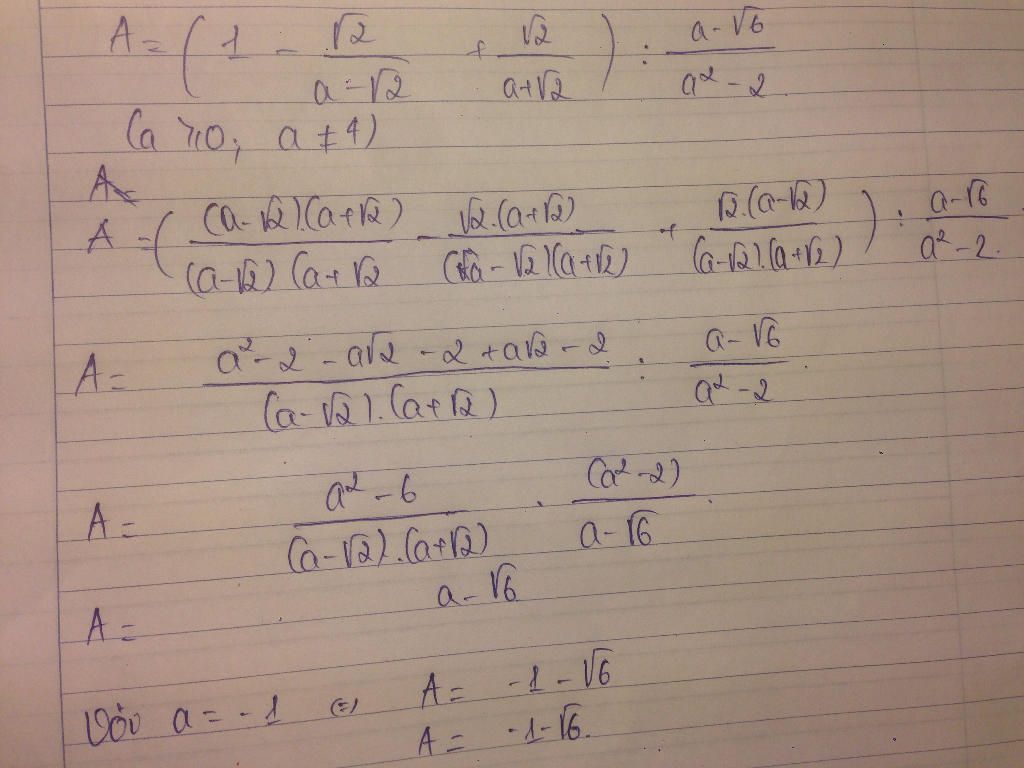 A = ( 1 - √2/(a-√2) + √2/(a+√2) ) : (a-√6)/(a²-2)
(a ⩾0; a ≠ 4)
A=
A = ( (a-√2).(a+√2)/(a-√2)(a+√2 - √2.(a+√2)/(a-√2)(a+√2) + √2.(a-√2)/(a-√2).(a+√2) ) : (a-√6)/(a²-2).
A = (a²-2-a√2-2+a√2-2)/(a-√2).(a+√2) : (a-√6)/(a²-2).
A = (a²-6)/(a-√2).(a+√2) . (a²-2)/(a-√6).
A = a-√6
Với a = -1 ⇔ A = -1-√6
A = -1-√6.